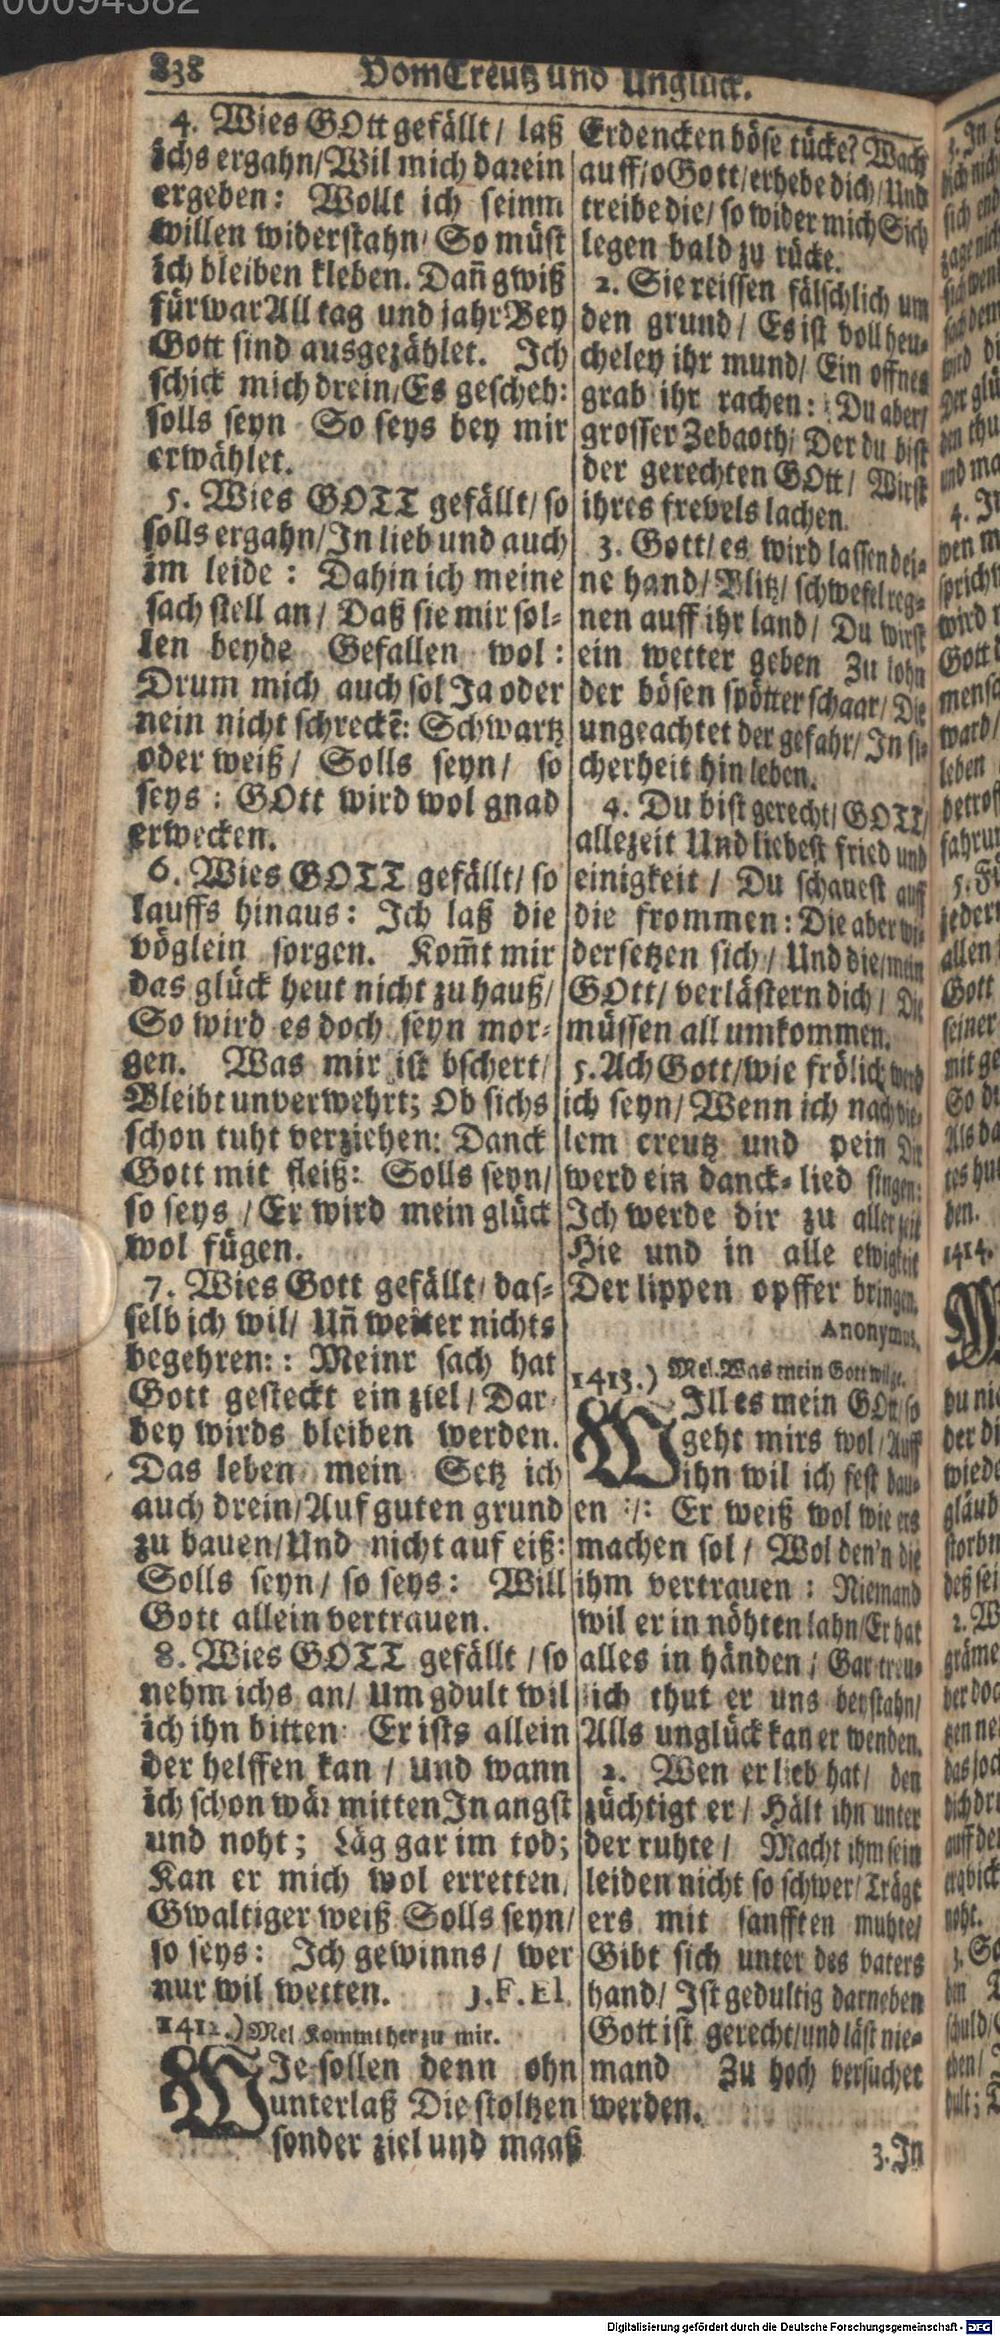 00094382
838 Vom Creutz und Unglück.
4. Wies GOtt gefällt / laß
ichs ergahn / Wil mich darein
ergeben: Wollt ich seinm
willen widerstahn / So müst
ich bleiben kleben. Dañ gwiß
fürwar All tag und jahr Bey
Gott sind ausgezählet. Ich
schick mich drein / Es gescheh:
solls seyn So seys bey mir
erwählet.
5. Wies GOTT gefällt / so
solls ergahn / In lieb und auch
im leide : Dahin ich meine
sach stell an / Daß sie mir sol-
len beyde Gefallen wol :
Drum mich auch sol Ja oder
nein nicht schreckē: Schwartz
oder weiß / Solls seyn / so
seys : GOtt wird wol gnad
erwecken.
6. Wies GOTT gefällt / so
lauffs hinaus: Ich laß die
vöglein sorgen. Kom̃t mir
das glück heut nicht zu hauß /
So wird es doch seyn mor-
gen. Was mir ist bschert /
Bleibt unverwehrt; Ob sichs
schon tuht verziehen: Danck
Gott mit fleiß: Solls seyn /
so seys / Er wird mein glück
wol fügen.
7. Wies Gott gefällt / das-
selb ich wil / Uñ weiter nichts
begehren: : Meinr sach hat
Gott gesteckt ein ziel / Dar
bey wirds bleiben werden.
Das leben mein Setz ich
auch drein / Auf guten grund
zu bauen / Und nicht auf eiß:
Solls seyn / so seys : Will
Gott allein vertrauen.
8. Wies GOTT gefällt / so
nehm ichs an / um gdult wil
ich ihn bitten: Er ists allein
der helffen kan / und wann
ich schon wär mitten In angst
und noht ; Läg gar im tod;
Kan er mich wol erretten,
Gwaltiger weiß Solls seyn /
so seys : Ich gewinns / wer
nur wil wetten. J.F.El.
1412.) Mel Kommt her zu mir.
WIe sollen denn ohn
unterlaß Die stoltzen
sonder ziel und maaß
Erdencken böse tücke? Wach
auff / o Gott / erhebe dich / Und
treibe die / so wider mich Sich
legen bald zu rücke.
2. Sie reissen fälschlich um
den grund / Es ist voll heu-
cheley ihr mund / Ein offnes
grab ihr rachen: Du aber /
grosser Zebaoth / Der du bist
der gerechten GOtt / Wirst
ihres frevels lachen.
3. Gott / es wird lassen dei-
ne hand / Blitz / schwefel reg-
nen auff ihr land / Du wirst
ein wetter geben Zu lohn
der bösen spötter schaar / Die
ungeachtet der gefahr / In si-
cherheit hin leben.
4. Du bist gerecht / GOTT /
allezeit Und liebest fried und
einigkeit / Du schauest auff
die frommen : Die aber wi-
dersetzen sich / Und die / mein
GOtt / verlästern dich / Die
müssen all umkommen.
5. Ach Gott / wie frölich werd
ich seyn / Wenn ich nach vie-
lem creutz und pein Dir
werd ein danck-lied singen:
Ich werde dir zu aller zeit
Hie und in alle ewigkeit
Der lippen opffer bringen.
Anonymus.
1413.) Mel. Was mein Gott wil ꝛc.
WIll es mein GOtt / so
geht mirs wol / Auff
ihn wil ich fest bau-
en :/: Er weiß wol wie ers
machen sol / Wol den'n die
ihm vertrauen : Niemand
wil er in nöhten lahn / Er hat
alles in händen ; Gar treu-
lich thut er uns beystahn /
Alls unglück kan er wenden.
2. Wen er lieb hat / den
züchtigt er / Hält ihn unter
der ruhte / Macht ihm sein
leiden nicht so schwer / Trägt
ers mit sanfften muhte /
Gibt sich unter des vaters
hand / Ist gedultig darneben
Gott ist gerecht / und läst nie-
mand Zu hoch versuchet
werden.
3. In
Digitalisierung gefördert durch die Deutsche Forschungsgemeinschaft - DFG